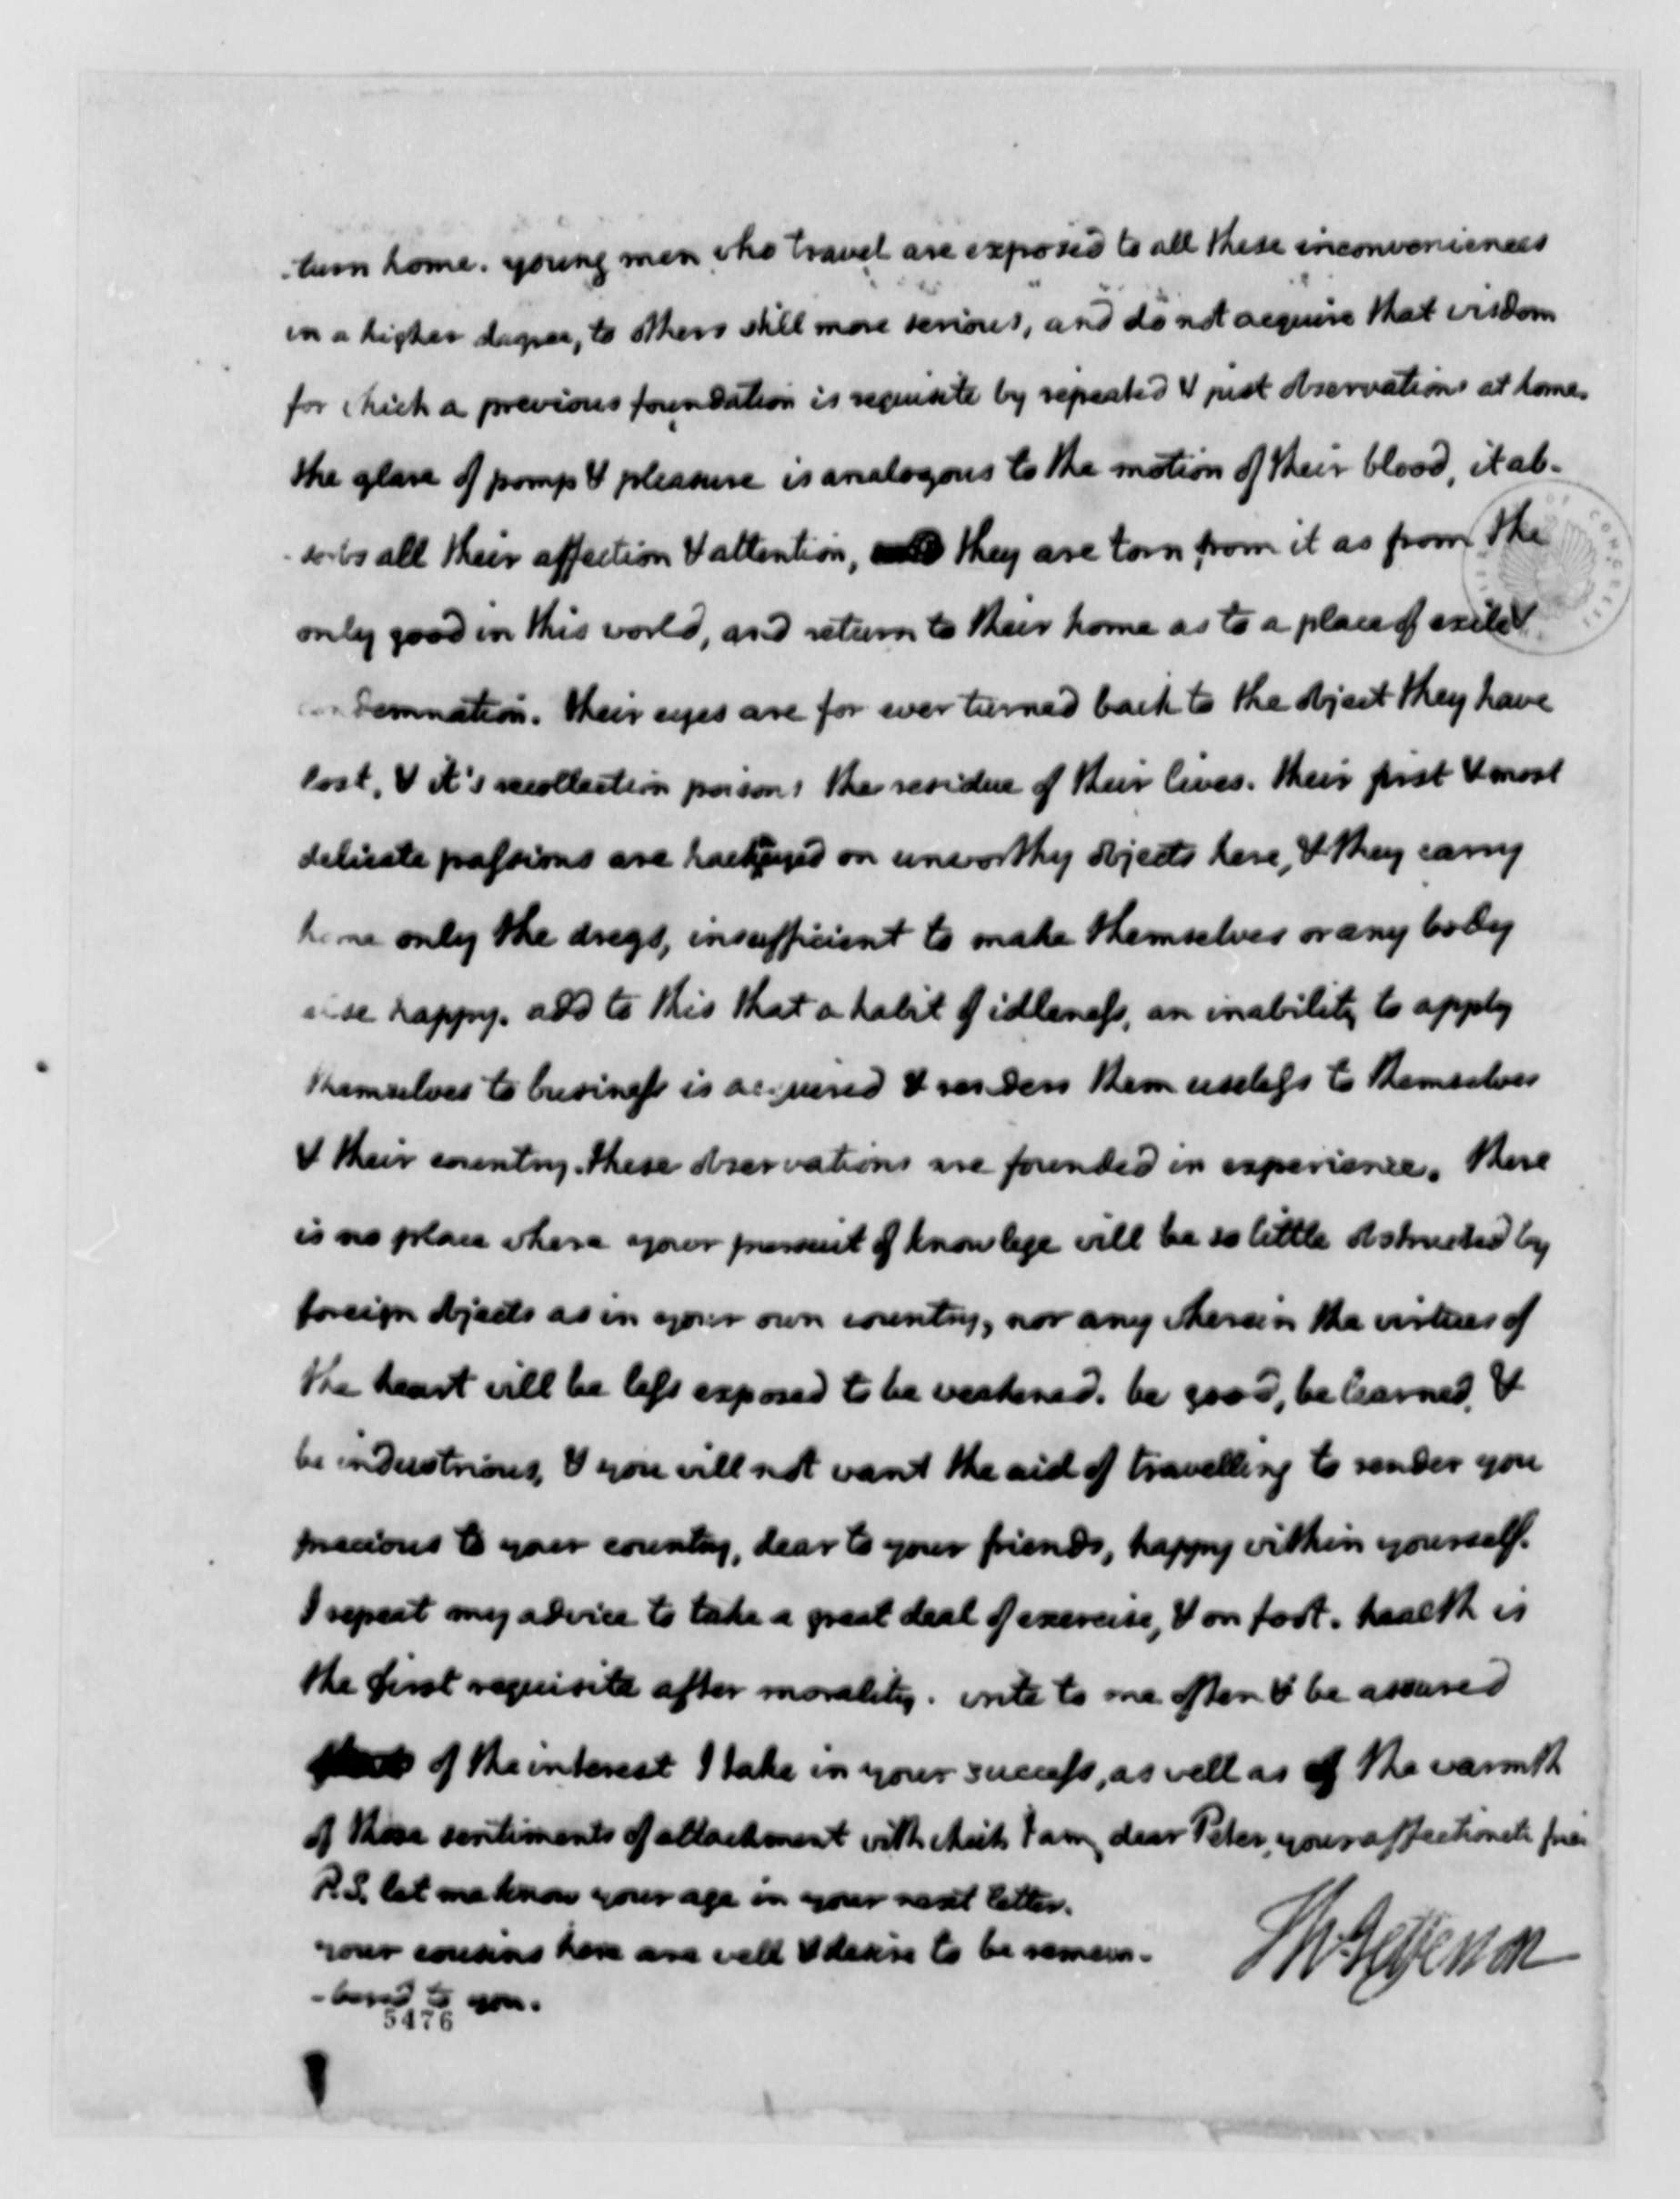 -turn home. young men who travel are exposed to all these inconveniences
in a higher degree, to others still more serious, and do not acquire that wisdom
for which a previous foundation is requisite by repeated & just observations at home.
the glare of pomp & pleasure is analogous to the motion of their blood, it ab-
-sorbs all their affection & attention, they are torn from it as from the
only good in this world, and return to their home as to a place of exile &
condemnation. their eyes are for ever turned back to the object they have
lost, & it's recollection poisons the residue of their lives. their first & most
delicate passions are hackneyed on unworthy objects here, & they carry
home only the dregs, insufficient to make themselves or any body
else happy. add to this that a habit of idleness, an inability to apply
themselves to business is acquired & renders them useless to themselves
& their country. these observations are founded in experience. there
is no place where your pursuit of knowlege will be so little obstructed by
foreign objects as in your own country, nor any wherein the virtues of
the heart will be less exposed to be weakened. be good, be learned, &
be industrious, & you will not want the aid of travelling to render you
precious to your country, dear to your friends, happy within yourself.
I repeat my advice to take a great deal of exercise, & on foot. health is
the first requisite after morality. write to me often & be assured
of the interest I take in your success, as well as of the warmth
of those sentiments of attachment with which I am, dear Peter, your affectionate frie
P.S. let me know your age in your next letter.
your cousins here are well & desire to be remem-
-bered to you.
Th: Jefferson
5476